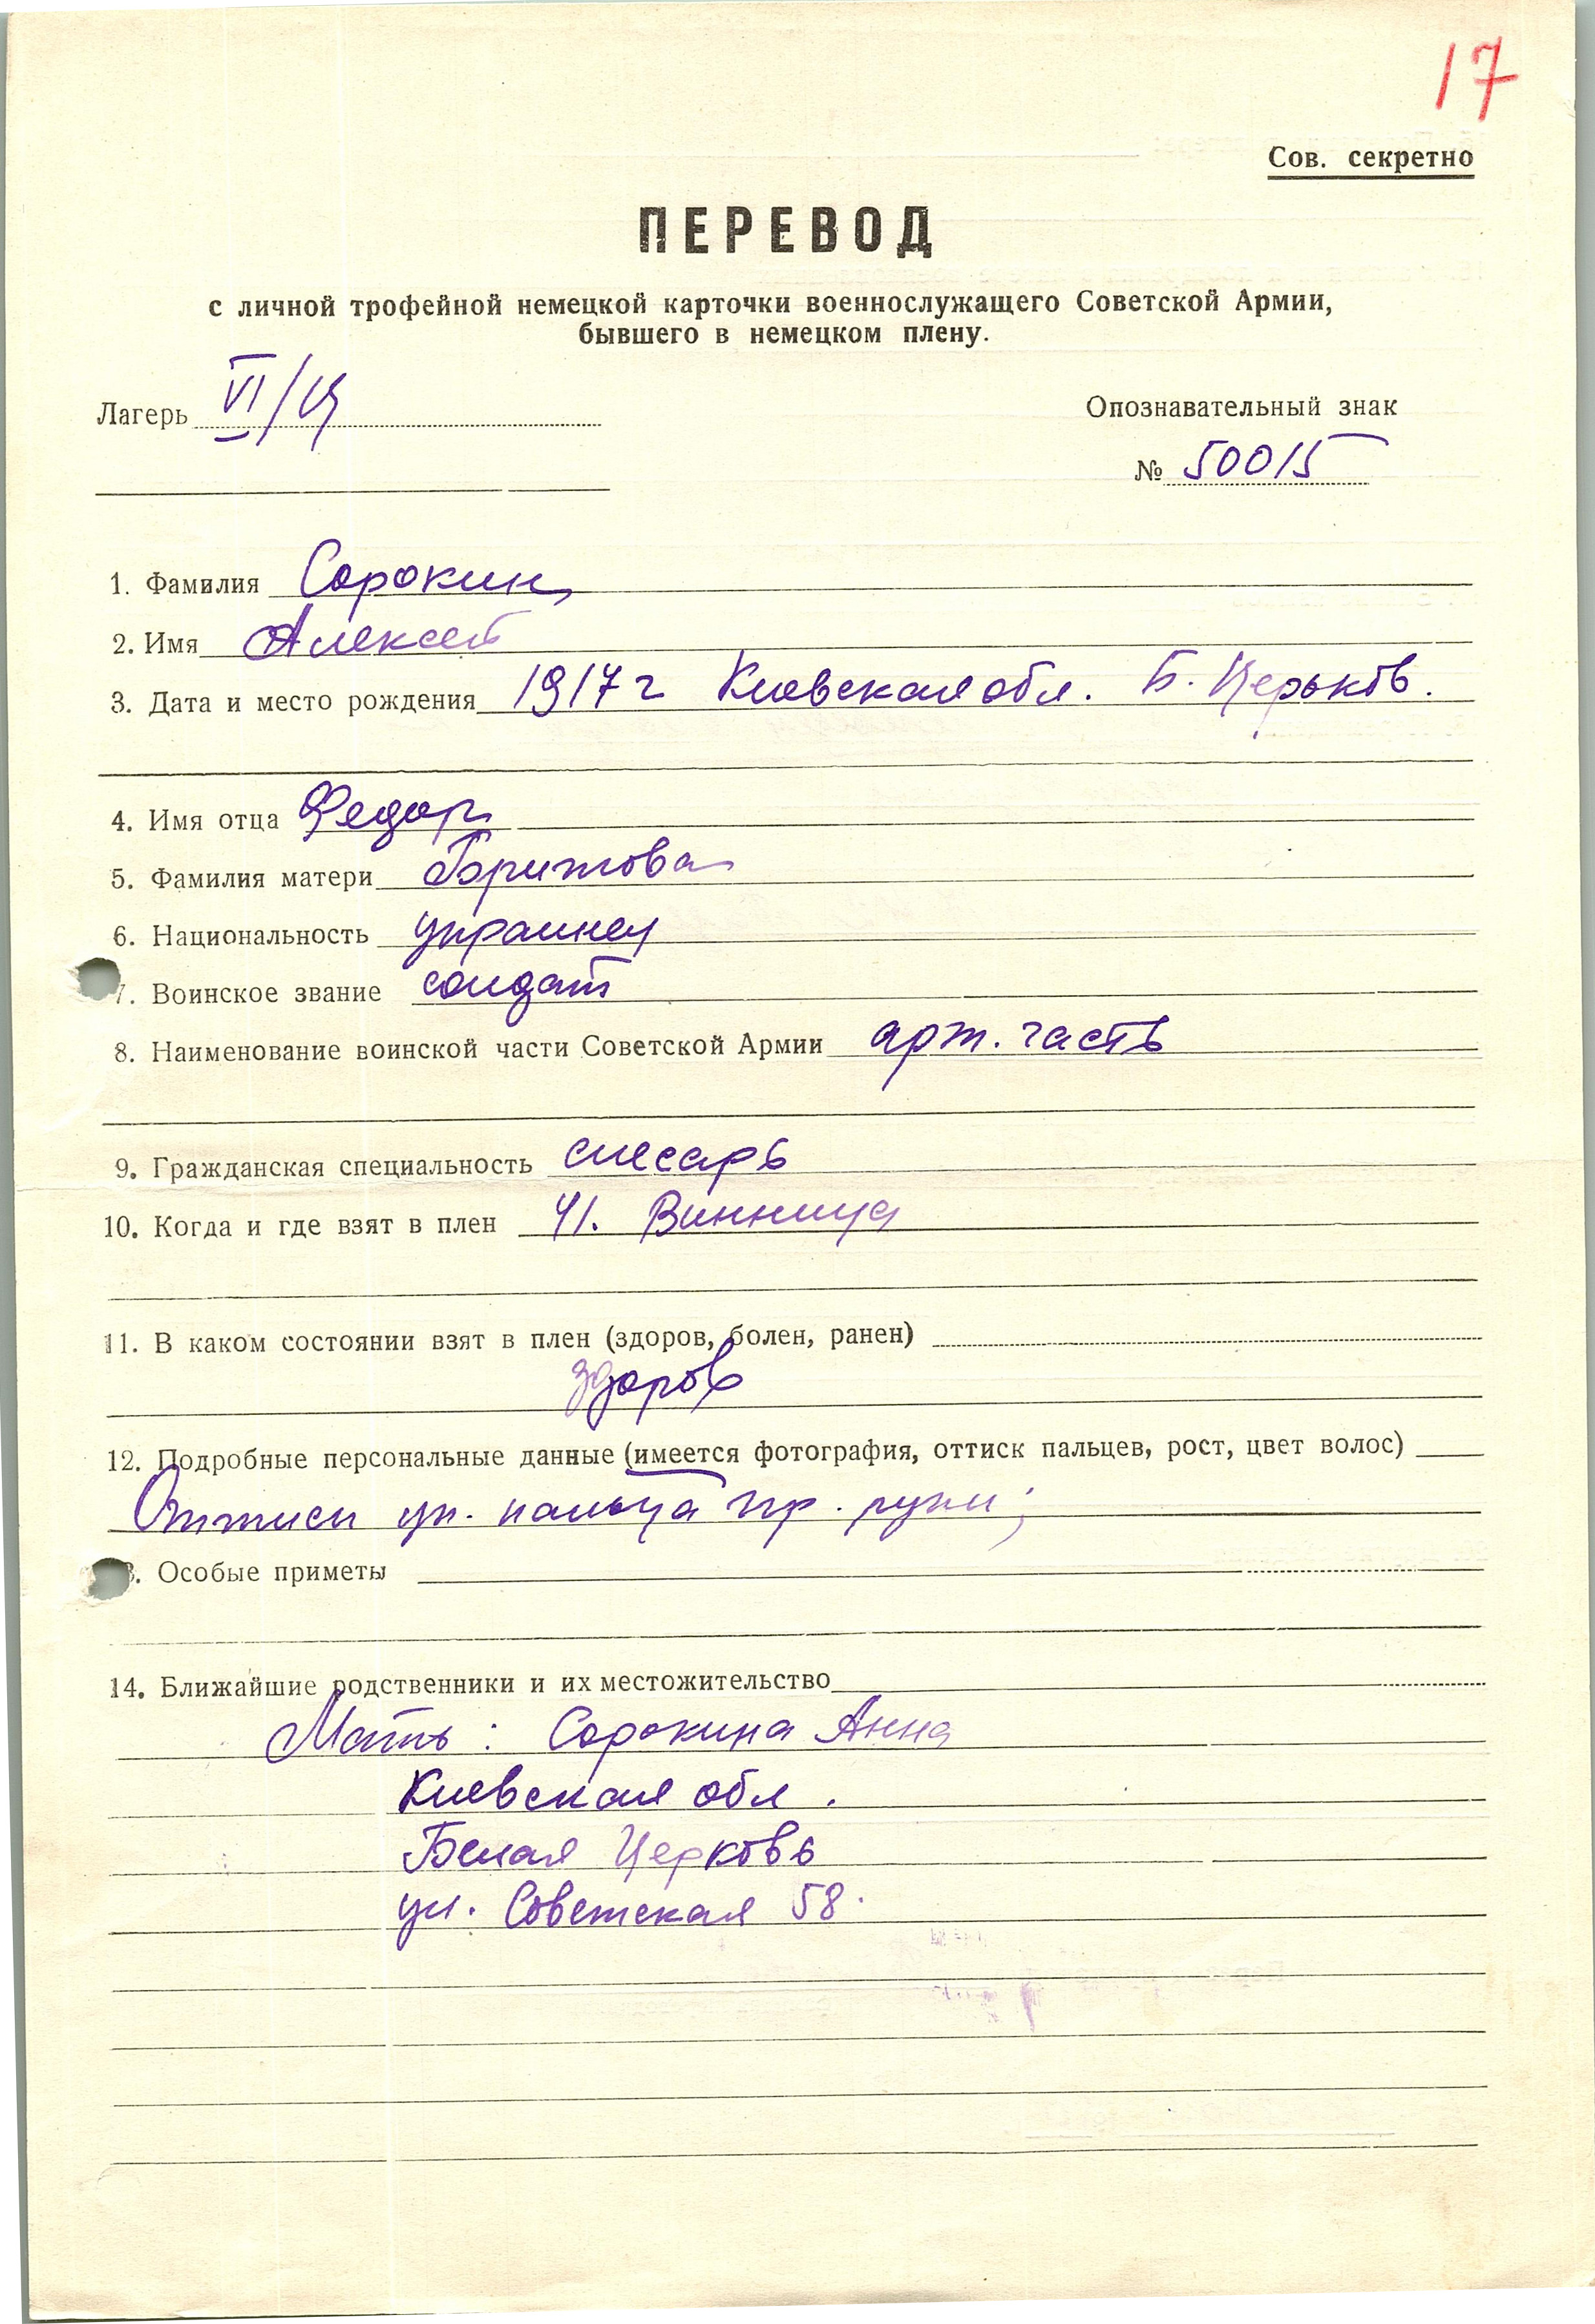 17
Сов. секретно
ПЕРЕВОД
с личной трофейной немецкой карточки военнослужащего Советской Армии,
бывшего в немецком плену.
Лагерь VI/
Опознавательный знак
№ 50015
1. Фамилия Сорокин
2. Имя Алексей
3. Дата и место рождения 1917 г Киевская обл. Б. Церьков.
4. Имя отца Федор
5. Фамилия матери
6. Национальность украинец
7. Воинское звание солдат
8. Наименование воинской части Советской Армии арт. часть
9. Гражданская специальность слесарь
10. Когда и где взят в плен 41. Винница
11. В каком состоянии взят в плен (здоров, болен, ранен)
здоров
12. Подробные персональные данные (имеется фотография, оттиск пальцев, рост, цвет волос)
Оттиск ук. пальца пр. руки;
3. Особые приметы
14. Ближайшие родственники и их местожительство
Мать: Сорокина Анна
Киевская обл.
Белая Церковь
ул. Советская 58.